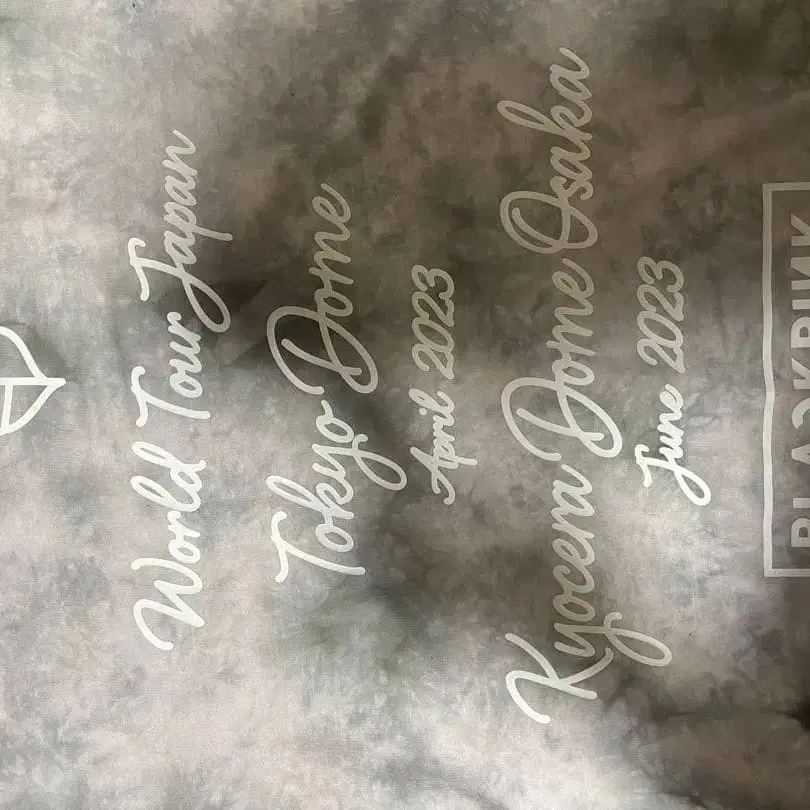 World Tour Japan
Tokyo Dome
April 2023
Kyocera Dome Osaka
June 2023
BLACKPINK